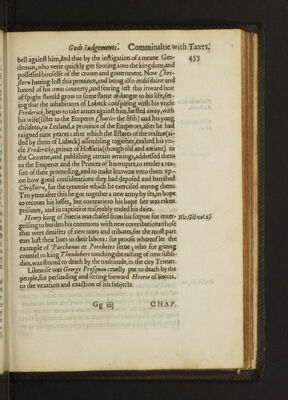 Gods Iudgements. Comminaltie with Taxes.
455
bell against him, and that by the instigation of a meane Gen-
tleman, who verie quickly got footing into the kingdom, and
possessed himselfe of the crown and gouernment. Now Chri-
stern hauing lost this prouince, and being also in disdaine and
hatred of his own country, and fearing lest this inward heat
of spight should grow to some flame of danger to his life, see-
ing that the inhabitants of Lubeck conspiring with his vncle
Frederick, began to take armes against him, he fled away, with
his wife (sister to the Emperor Charles the fift) and his yong
children, to Zeland, a prouince of the Emperors, after he had
raigned nine yeares: after which the Estates of the realme (ai-
ded by them of Lubeck) assembling together, exalted his vn-
cle Frederick, prince of Holsatia (though old and ancient) to
the Crowne, and publishing certain writings, addressed them
to the Emperor and the Princes of his empire, to render a rea-
son of their proceeding, and to make knowne vnto them vp-
on how good considerations they had deposed and banished
Christern, for the tyrannie which he exercised among them.
Ten yeres after this he got together a new army by sea, in hope
to recouer his losses, but contrarie to his hope he was taken
prisoner, and in captiuitie miserably ended his daies.
Henry king of Suecia was chased from his scepter for enter-
prising to burden his commons with new contributions: those
that were deuisers of new taxes and tributes, for the most part
euer lost their liues in their labors: for proofe whereof let the
example of Parthenius or Porchetes serue, who for giuing
counsel to king Theodobert touching the raising of new subsi-
dies, was stoned to death by the multitude, in the city Trieues.
Likewise was George Presquon cruelly put to death by the
people, for persuading and setting forward Henrie of Suecia,
to the vexation and exaction of his subjects.
Gg iiij CHAP.